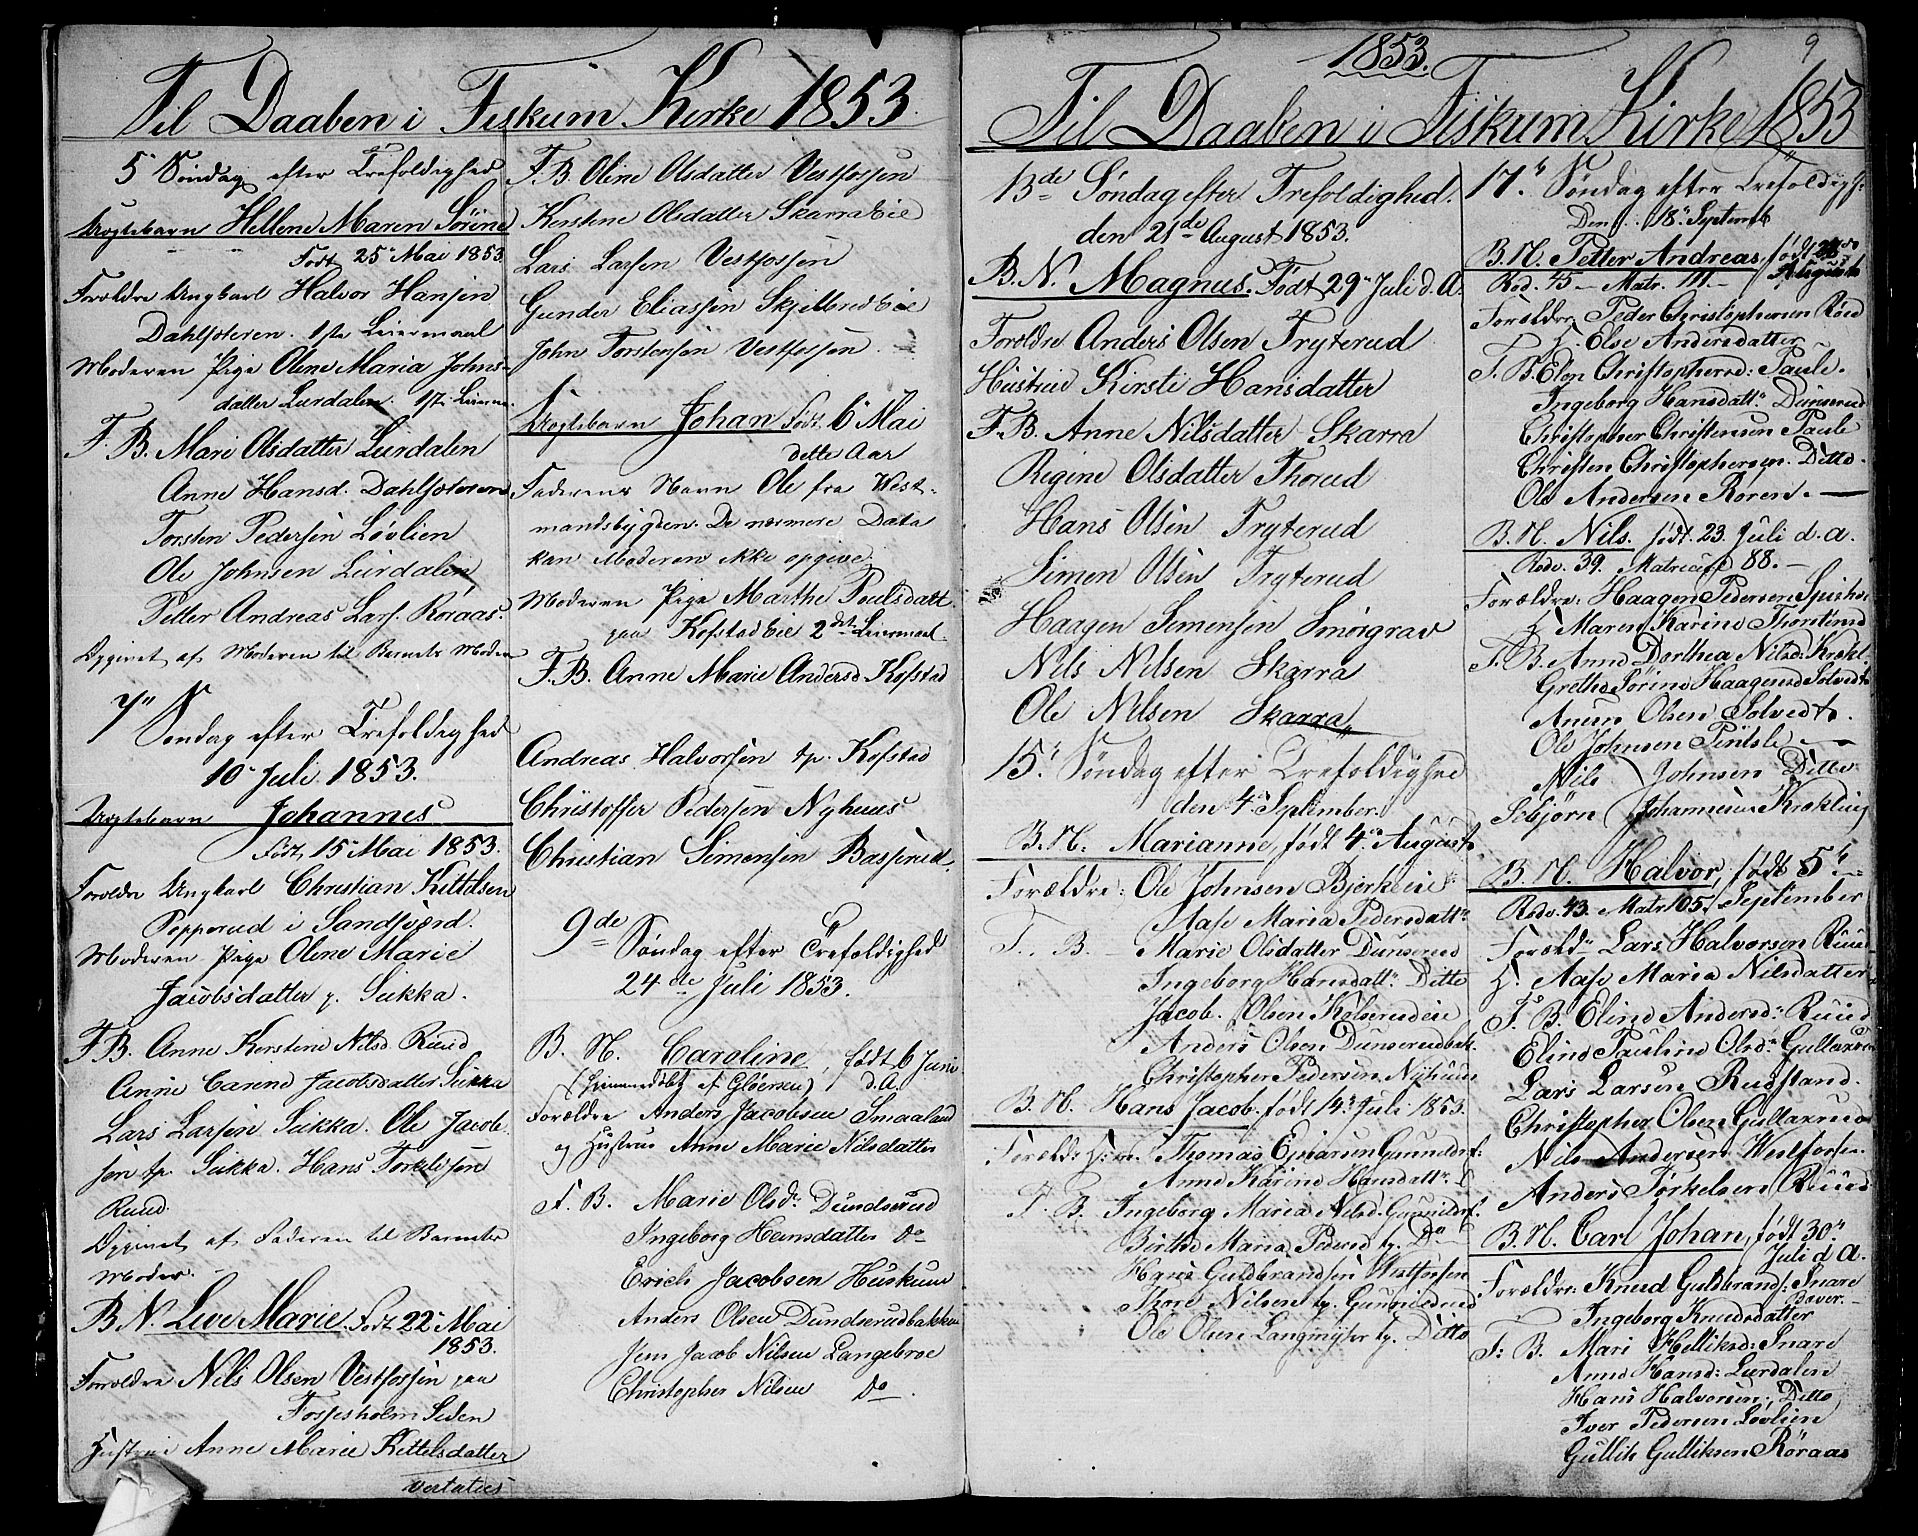 Til Daaben i Fiskum Kirke 1853.
5 Søndag efter Trefoldighed
Uægtebarn Hellene Maren Sørine
Født 25 Mai 1853
Foroldre Ungkarl Halvor Hansen
Dahlsæteren. 1ste Leiermaal
Moderen Pige Olene Maria Johns-
datter Lurdalen. 1ste Leierm.
F. B. Mari Olsdatter Lurdalen
Anne Hansd. Dahlsæteren
Torsten Pedersen Løvlien
Ole Johnsen Lurdalen
Petter Andreas Lars. Roraas.
Opgivet af Moderen til Barnets Moder
7de Søndag efter Trefoldighed
10 Juli 1853.
Uægtebarn Johannes
Født 15 Mai 1853.
Foroldre Ungkarl Christian Kittelsen
Pepperud i Sandsværd.
Moderen Pige Olene Marie
Jacobsdatter p. Sukka.
F. B. Anne Kerstine Nilsd. Ruud
Anne Carene Jacobsdatter Sukka
Lars Larsen Sukka. Ole Jacob
sen tp. Sukka. Hans Torkelsen
Ruud.
Opgivet af Faderen til Barnets
Moder.
B. N. Live Marie. Født 22 Mai
1853.
Foroldre Nils Olsen Vestfossen paa
Fossesholm Siden
Hustrue Anne Marie Kittelsdatter
F. B. Oline Olsdatter Vestfossen
Kerstene Olsdatter Skarra Eie
Lars Larsen Vestfossen
Gunder Eliassen Skjelbred Eie
John Torstensen Vestfossen.
Uægtebarn Johan Født 6 Mai
dette Aar
Faderens Navn Ole fra Vest-
mandsbygden. De nærmere Data
kan Moderen ikke opgive
Moderen Pige Marthe Poulsdatt.
paa Kofstad Eie 2det Leiermaal.
F. B. Anne Marie Andersd. Kofstad
Andreas Halvorsen tp. Kofstad
Christoffer Pedersen Nyhuus
Christian Simensen Basserud.
9de
Søndag efter Trefoldighed
24de Juli 1853.
B. N. Caroline, født 6 Juni
(hjemmedøbt af Gløersen) d. A
Forældre Anders Jacobsen Smaaland
og Hustrue Anne Marie Nilsdatter
F. B. Marie Olsd. Dundserud
Ingeborg Hansdatter Do
Erich Jacobsen Huskum
Anders Olsen Dundserudbakken
Jens Jacob Nilsen Langebroe
Christopher Nilsen Do.
1853.
9
Til Daaben i Fiskum Kirke 1853
13de Søndag efter Trefoldighed.
den 21de August 1853.
B. N. Magnus. Født 29 Juli d. A.
Foroldre Anders Olsen Tryterud
Hustrue Kirsti Hansdatter
F. B. Anne Nilsdatter Skarra
Regine Olsdatter Thorud
Hans Olsen Tryterud
Simen Olsen Tryterud
Haagen Simensen Smørgrav
Nils Nilsen Skarra
Ole Nilsen Skarra
15. Søndag efter Trefoldighed
den 4de September.
B. N. Marianne, født 4de August
Forældre: Ole Johnsen Bjerkeeie
Aase Maria Pedersdattr.
F. B. Marie Olsdatter Dunserud
Ingeborg Hansdattr. Ditto
Jacob. Olsen Kolserudeie
Anders Olsen Dunserudbak.
Christopher Pedersen Nyhuus
B. N. Hans Jacob. født 14. Juli 1853.
Foræld: Thomas Gunerud
Anne Karine Hansdattr.
F. B. Ingeborg Maria Nilsd.
Birthe Maria Pedersd. tp. Do
Hans Guldbrandsen Westfossen
Thore Nilsen tp.
Ole Olsen Langmyhr tp. Ditto
17. Søndag efter Trefoldigh:
Den 18. Septemb
B. N. Petter Andreas, født
August
Rod. 45 – Matr. 111. –
Forældre: Peder Christophersen Röed
H. Else Andersdatter
F. B. Elen Christophersd: Paule.
Ingeborg Hansdattr. Dunserud
Christopher Christensen Paule
Christen Christophersen. Ditto.
Ole Andersen Roren. –
B. N. Nils. født. 23. Juli d. a.
Rode. 39. Matricul 88. –
Forældre: Haagen Pedersen
H. Maren Karine Thorstensd
F. B. Anne Dorthea Nilsd: Krekl.
Grethe Sørine Haagensd Solvedt
Olsen Solvedt.
Ole Johnsen Pintsle –
Nils Johnsen Ditto
Sebjørn Johannesen Krekling
B. N. Halvor, født 5te
Rode. 43. Matr. 105. September
Foræld: Lars Halvorsen Ruud
H. Aase Maria Nilsdatter
F. B. Eline Andersd: Ruud
Eline Pauline Olsd.
Lars Larsen Rudstand.
Christopher Olsen
Nils Andersen Westfossen.
Anders Torkelsen Ruud
B. N. Carl Johan, født 30te
Juli d A.
Forældre: Knud Guldbrands. Snare
Ingeborg Knudsdatter
F. B. Mari Helliksd: Snare
Anne Hansd: Lurdalen
Hans Halvorsen, Ditto
Iver Pedersen Løvlien
Gullik Gulliksen Röraas